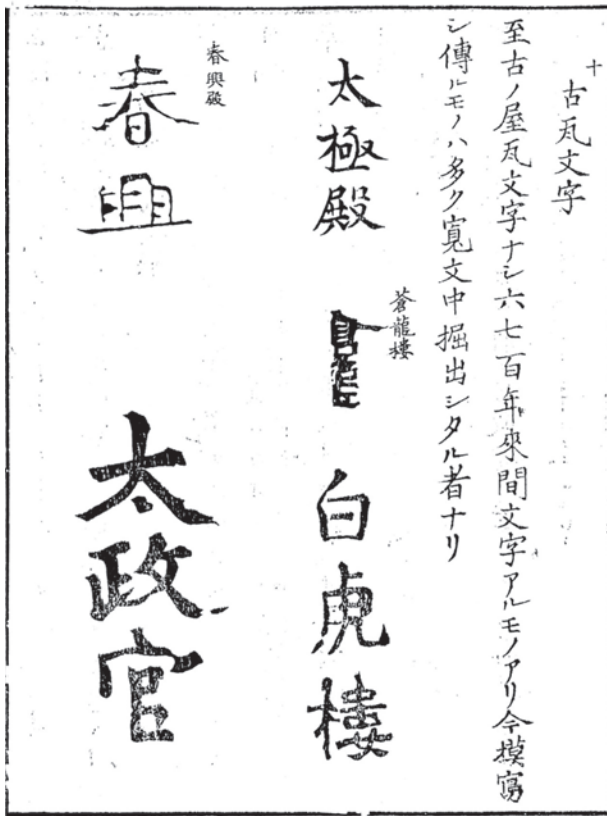 十
古瓦文字
至古ノ屋瓦文字ナシ六七百年來間文字アルモノアリ今摸寫
シ傳ルモノハ多ク寬文中掘出シタル者ナリ
太極殿
蒼龍樓
白虎樓
春興殿
春興
太政官